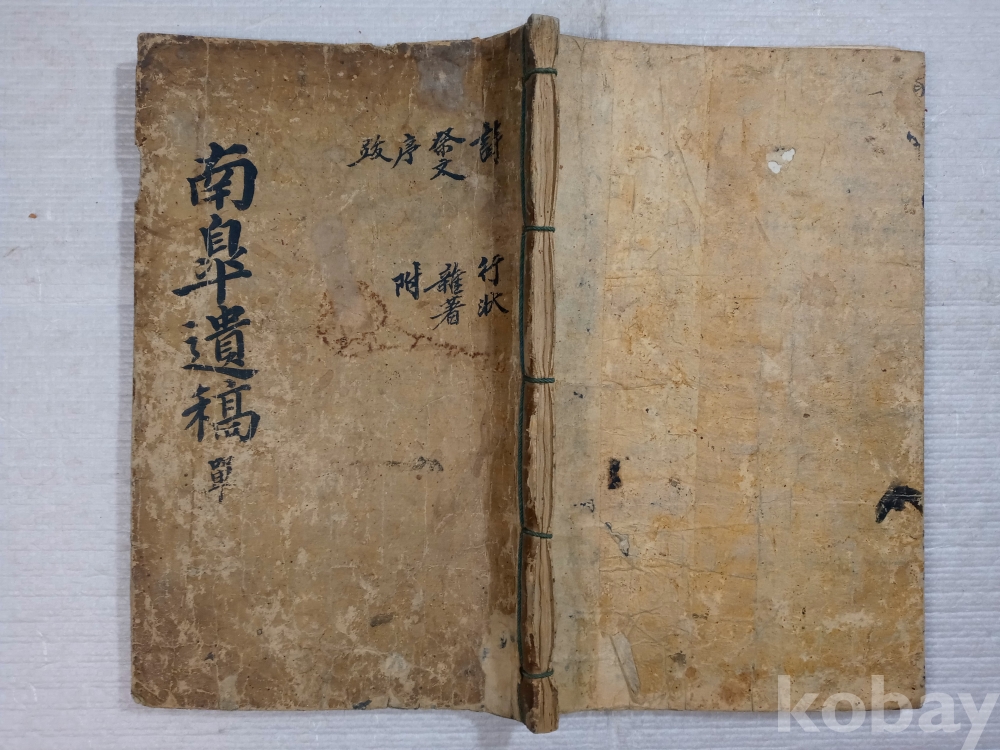 南皐遺稿 單
詩 行狀
祭文 雜著
序 附
跋
kobay